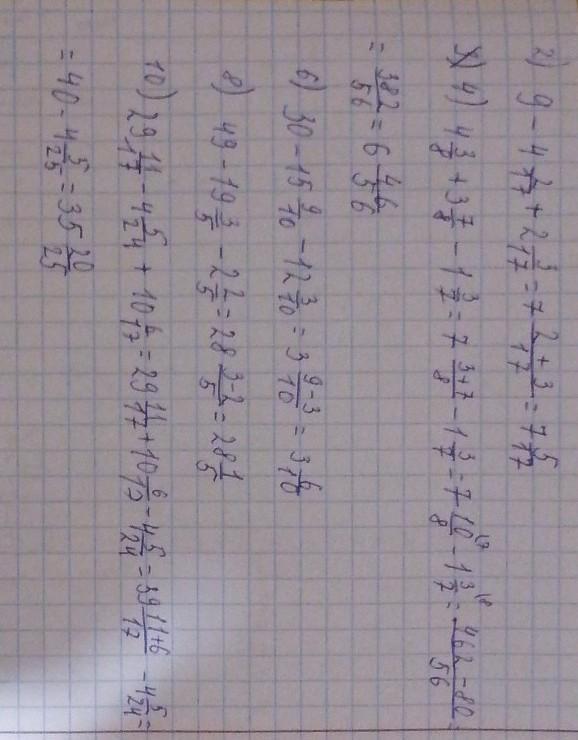 2) 9 - 4 2/17 + 2 3/17 = 7 (2+3)/17 = 7 5/17
4) 4 3/8 + 3 7/8 - 1 3/7 = 7 (3+7)/8 - 1 3/7 = 7 10/8 - 1 3/7 = (462-80)/56 =
= 382/56 = 6 46/56
6) 30 - 15 9/10 - 12 3/10 = 3 (9-3)/10 = 3 6/10
8) 49 - 19 3/5 - 2 2/5 = 28 (3-2)/5 = 28 1/5
10) 29 11/17 - 4 5/24 + 10 6/17 = 29 11/17 + 10 6/17 - 4 5/24 = 39 (11+6)/17 - 4 5/24 =
= 40 - 4 5/25 = 35 20/25